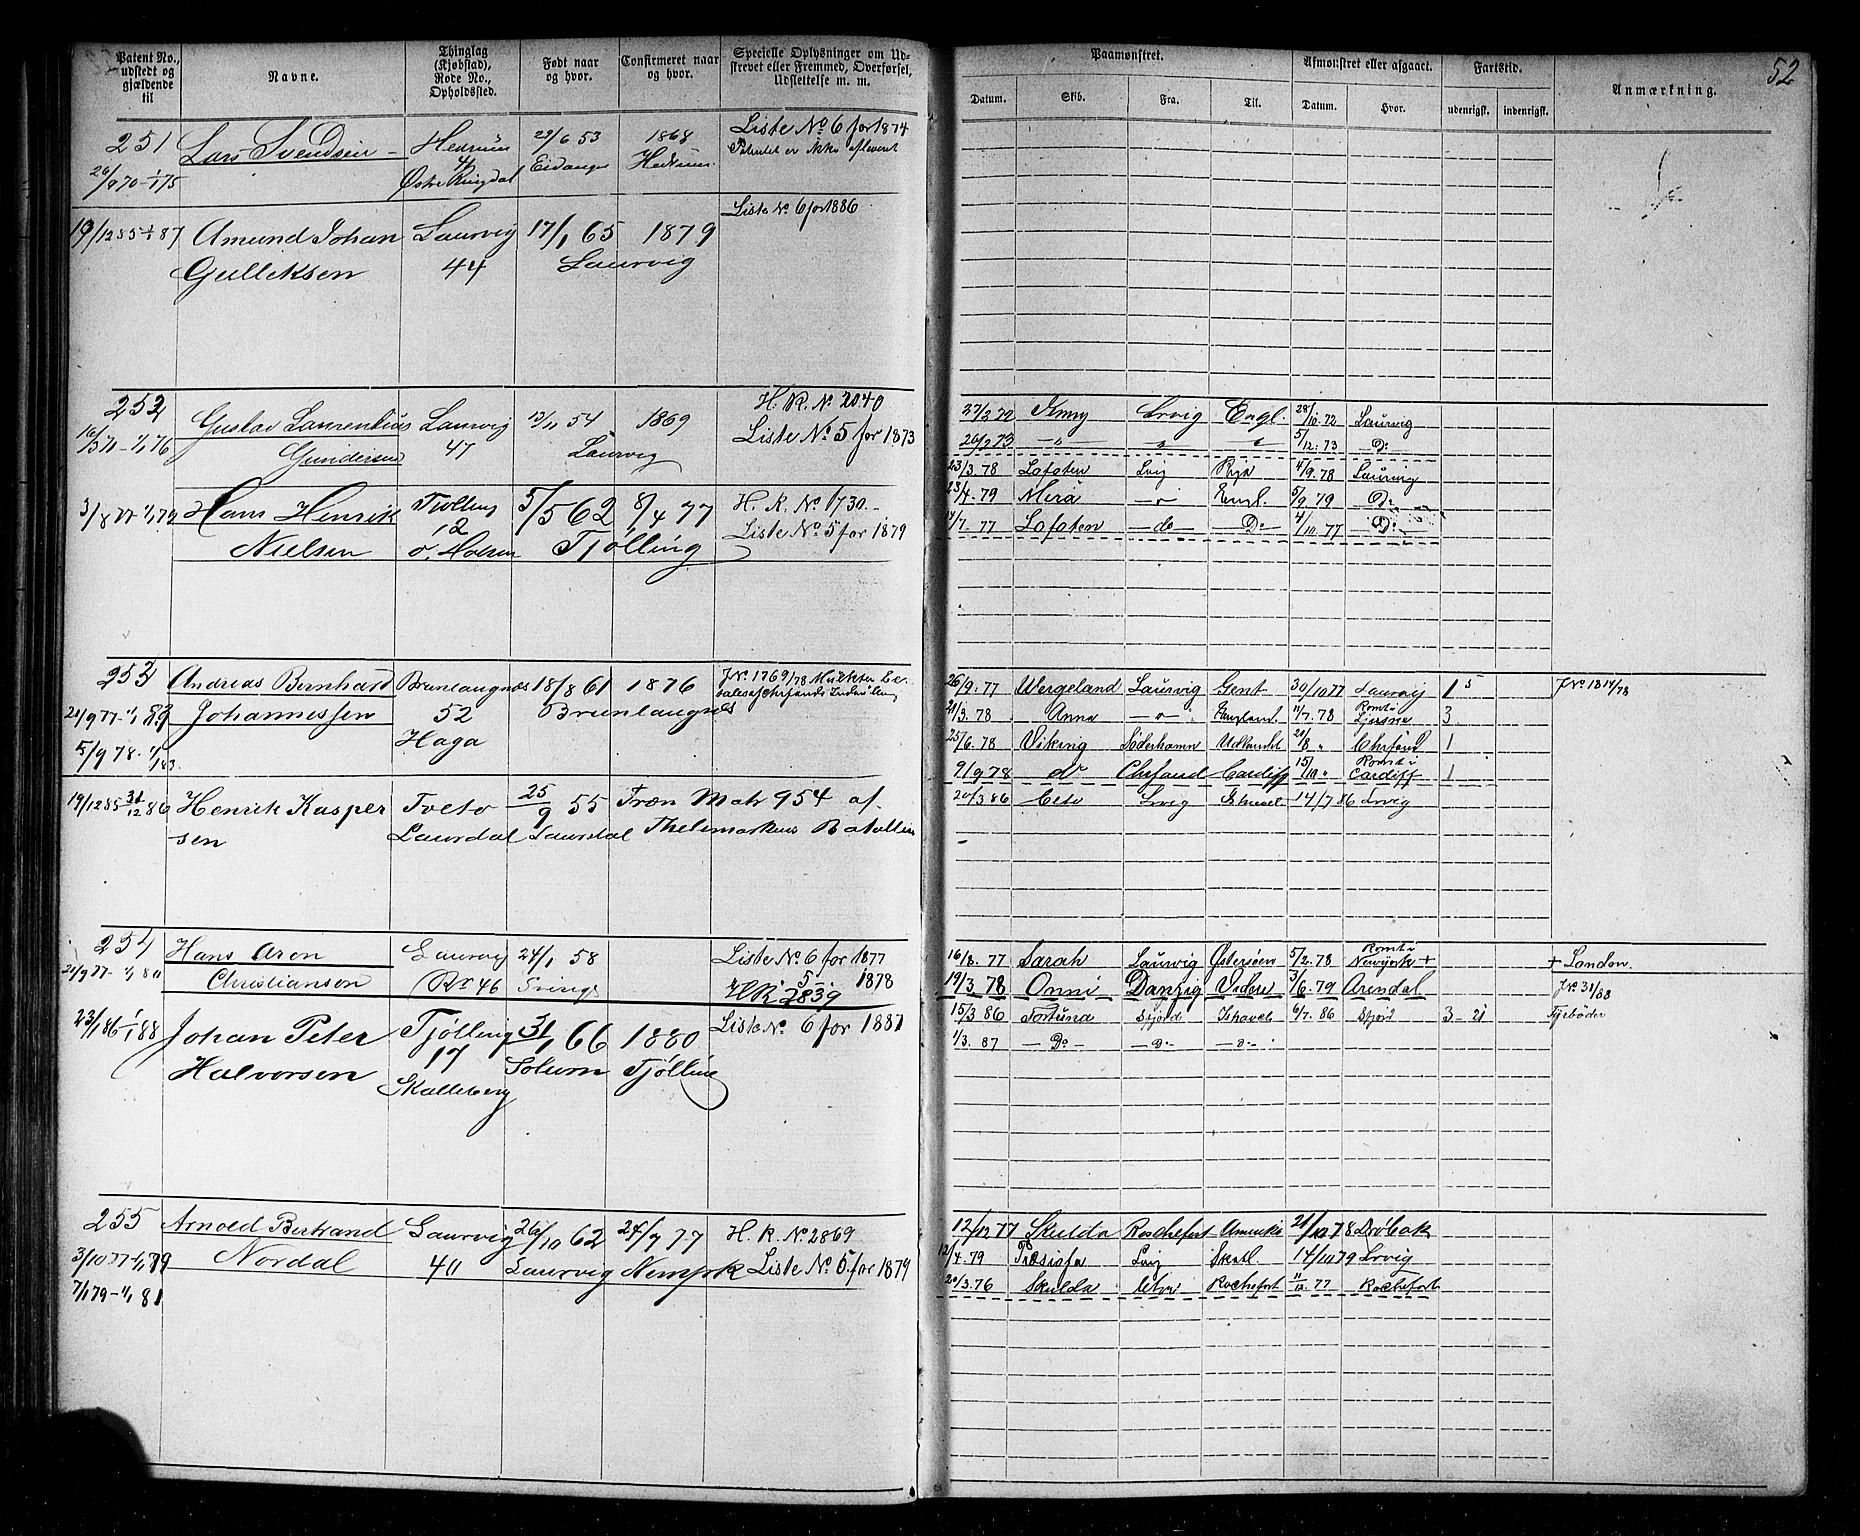 52
Patent No., udstedt og gjældende til
Navne.
Thinglag (Kjøbstad), Rode No., Opholdssted.
Født naar og hvor.
Confirmeret naar og hvor.
Specielle Oplysninger om Udskrevet eller Fremmed, Overførsel, Udslettelse m. m.
Paamønstret.
Afmønstret eller afgaaet.
Fartstid.
Anmærkning.
Datum. Skib. Fra. Til. Datum. Hvor. udenrigsk. indenrigsk.
251 Lars Svendsen 6 53 1868 Liste No 6 for 1874
Østre Ringdal Eidanger
19/12 85 1/1 87 Amund Johan Laurvig 17/1 65 1879 Liste No 6 for 1886
Gulliksen 44 Laurvig
252 Gustav Laurentius Laurvig 12/11 54 1869 H. R. No 2040
Gundersen 47 Laurvig Liste No 5 for 1873
27/2 72 Lrvig Engl. 28/10. 72 Laurvig
26/2 73 5/12. 73 Do
23/3. 78 Lofoten Lvig 4/9. 78 Laurvig
23/4. 79 Engl. 5/9 79 Do
7. 77 Lofoten do Do 4/10. 77 Do
3/8 77 Hans Henrik Tjølling 5/5 62 8/4 77 H. R. No 1730
Nielsen 12 Tjølling Liste No 5 for 1879
253 Andreas Bernhard Brunlangnæs 18/8 61 1876 J No 1769/78
21/9 77 Johannessen 52 Brunlangnæs
5/9 78 Haga
26/9. 77 Wergeland Laurvig Gent 30/10 77 Laurvig 1 5 J No 1814/78
21/3. 78 Anna England 11/7. 78 3
25/6. 78 Viking Söderhamn Udlandet 1
9/9 78 do Chrsand Cardiff 15/10 Romt i Cardiff 1
20/3 86 Ceto Lvig 14/7 86 Lrvig
19/12 85 31/12 86 Henrik Kasper Tveto 25/9 55 Træn Matr 954 af
sen Laurdal Laurdal Thelemarkens Bataillon
254 Hans Aron Laurvig 24/1 58 Liste No 6 for 1877
21/9 77 Christiansen No 46 5 1878
HR 2839
16/8. 77 Sarah Laurvig Østersöen 5/2. 78 Romt i Newyork + + London.
19/3 78 Onni Danzig Videre 3/6. 79 Arendal J No 31/88
15/3 86 Fortuna Ishavet 6/7. 86 3 - 21 Fyrbøder
1/3. 87 Do Do Do
23/1 86 1/1 88 Johan Peter Tjølling 31/1 66 1880 Liste No 6 for 1887
Halvorsen 17 Solum Tjølling
Skalleberg
255 Arnold Bertrand Laurvig 26/10 62 24/9 77 H. R. No 2869
3/10 77 Nordal 40 Laurvig Liste No 5 for 1879
7/1 79 1/1 81
12/12 77 Skulda Rochefort 21/10 78 Drøbak
12/4. 79 Lvig 14/10 79 Lrvig
20/3. 76 Skulda Rochefort 77 Rochefort